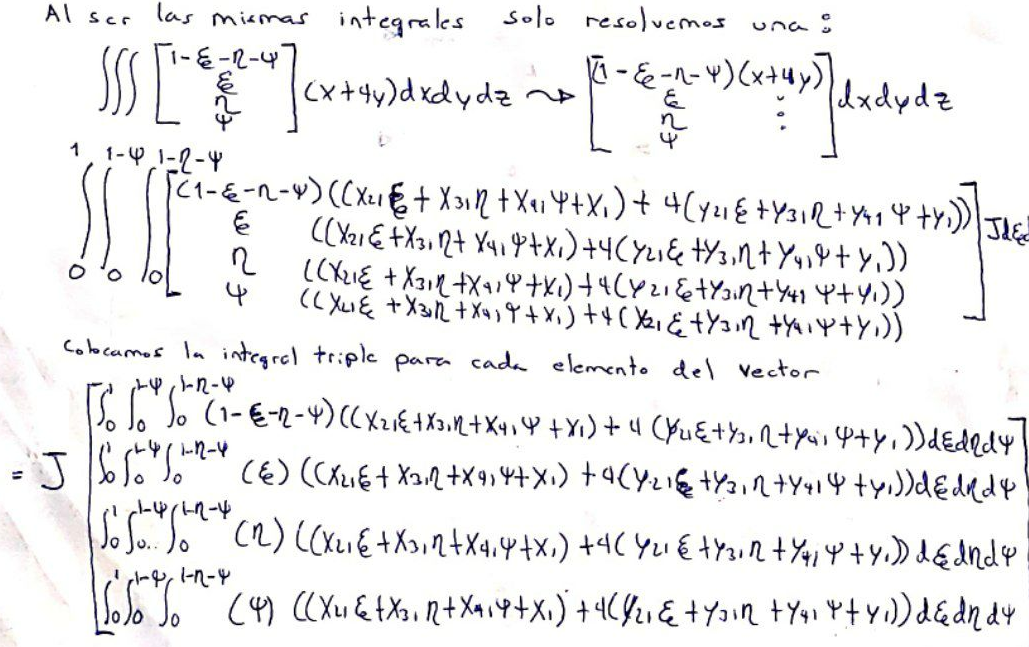 Al ser las mismas integrales solo resolvemos una :
∭ [1-ξ-η-ψ ξ η ψ] (x+4y)dxdydz ⇝ [(1-ξ-η-ψ)(x+4y) ξ η ψ ⋮] dxdydz
∫₀¹ ∫₀^{1-ψ} ∫₀^{1-η-ψ} [(1-ξ-η-ψ)((x₂₁ξ + x₃₁η + x₄₁ψ + x₁) + 4(y₂₁ξ + y₃₁η + y₄₁ψ + y₁))] Jdξd
ξ ((x₂₁ξ + x₃₁η + x₄₁ψ + x₁) + 4(y₂₁ξ + y₃₁η + y₄₁ψ + y₁))
η ((x₂₁ξ + x₃₁η + x₄₁ψ + x₁) + 4(y₂₁ξ + y₃₁η + y₄₁ψ + y₁))
ψ ((x₂₁ξ + x₃₁η + x₄₁ψ + x₁) + 4(y₂₁ξ + y₃₁η + y₄₁ψ + y₁))
Colocamos la integral triple para cada elemento del vector
∫₀¹ ∫₀^{1-ψ} ∫₀^{1-η-ψ} (1-ξ-η-ψ)((x₂₁ξ + x₃₁η + x₄₁ψ + x₁) + 4(y₂₁ξ + y₃₁η + y₄₁ψ + y₁))dξdηdψ
= J ∫₀¹ ∫₀^{1-ψ} ∫₀^{1-η-ψ} (ξ) ((x₂₁ξ + x₃₁η + x₄₁ψ + x₁) + 4(y₂₁ξ + y₃₁η + y₄₁ψ + y₁))dξdηdψ
∫₀¹ ∫₀^{1-ψ} ∫₀^{1-η-ψ} (η) ((x₂₁ξ + x₃₁η + x₄₁ψ + x₁) + 4(y₂₁ξ + y₃₁η + y₄₁ψ + y₁))dξdηdψ
∫₀¹ ∫₀^{1-ψ} ∫₀^{1-η-ψ} (ψ) ((x₂₁ξ + x₃₁η + x₄₁ψ + x₁) + 4(y₂₁ξ + y₃₁η + y₄₁ψ + y₁))dξdηdψ